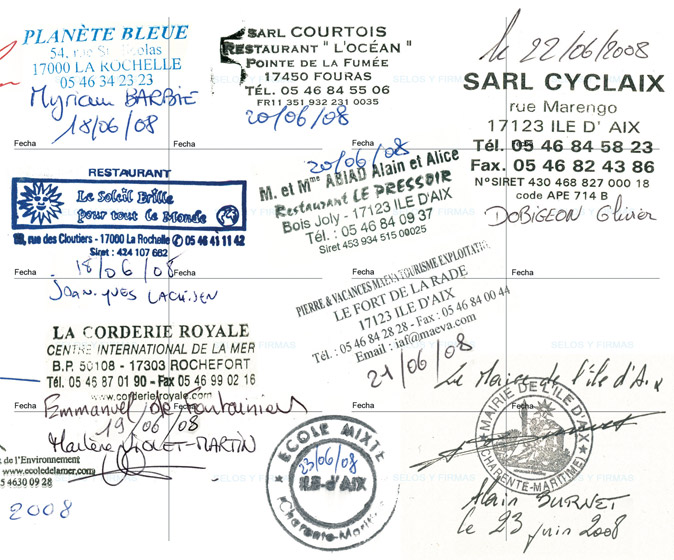 PLANÈTE BLEUE
54, rue St Nicolas
17000 LA ROCHELLE
05 46 34 23 23
Myriam BARBIE
18/06/08
SARL COURTOIS
RESTAURANT " L'OCÉAN "
POINTE DE LA FUMÉE
17450 FOURAS
TÉL. 05 46 84 55 06
FR11 351 932 231 0035
20/06/08
le 22/06/2008
SARL CYCLAIX
rue Marengo
17123 ILE D' AIX
Tél. 05 46 84 58 23
Fax. 05 46 82 43 86
N°SIRET 430 468 827 000 18
code APE 714 B
DOBIGEON Olivier
SELOS Y FIRMAS
Fecha
Fecha
Fecha
Fecha
RESTAURANT
Le Soleil Brille
pour tout le Monde
rue des Cloutiers - 17000 La Rochelle 05 46 41 11 42
Siret : 424 107 662
18/06/08
20/06/08
M. et Mme ABIAD Alain et Alice
Restaurant LE PRESSOIR
Bois Joly - 17123 ILE D'AIX
Tél. : 05 46 84 09 37
Siret 453 934 515 00025
Fecha
Fecha
Fecha
Fecha
PIERRE & VACANCES MAEVA TOURISME EXPLOITATION
LE FORT DE LA RADE
17123 ILE D'AIX
Tél : 05 46 84 28 28 - Fax : 05 46 84 00 44
Email : iaf@maeva.com
21/06/08
LA CORDERIE ROYALE
CENTRE INTERNATIONAL DE LA MER
B.P. 50108 - 17303 ROCHEFORT
Tél. 05 46 87 01 90 - Fax 05 46 99 02 16
www.corderieroyale.com
Emmanuel de Fontainieu
19/06/08
Marlène VIOLET-MARTIN
SELOS Y FIRMAS
Fecha
Fecha
Fecha
t de l'Environnement
www.ecoledelamer.com
5 4630 09 28
2008
ÉCOLE MIXTE
23/06/08
ILE-d'AIX
Charente-Maritime
Le Maire de l'île d'Aix
MAIRIE DE L'ILE D'AIX
(CHARENTE-MARITIME)
Alain BURNET
le 23 juin 2008
SELOS Y FIRMAS